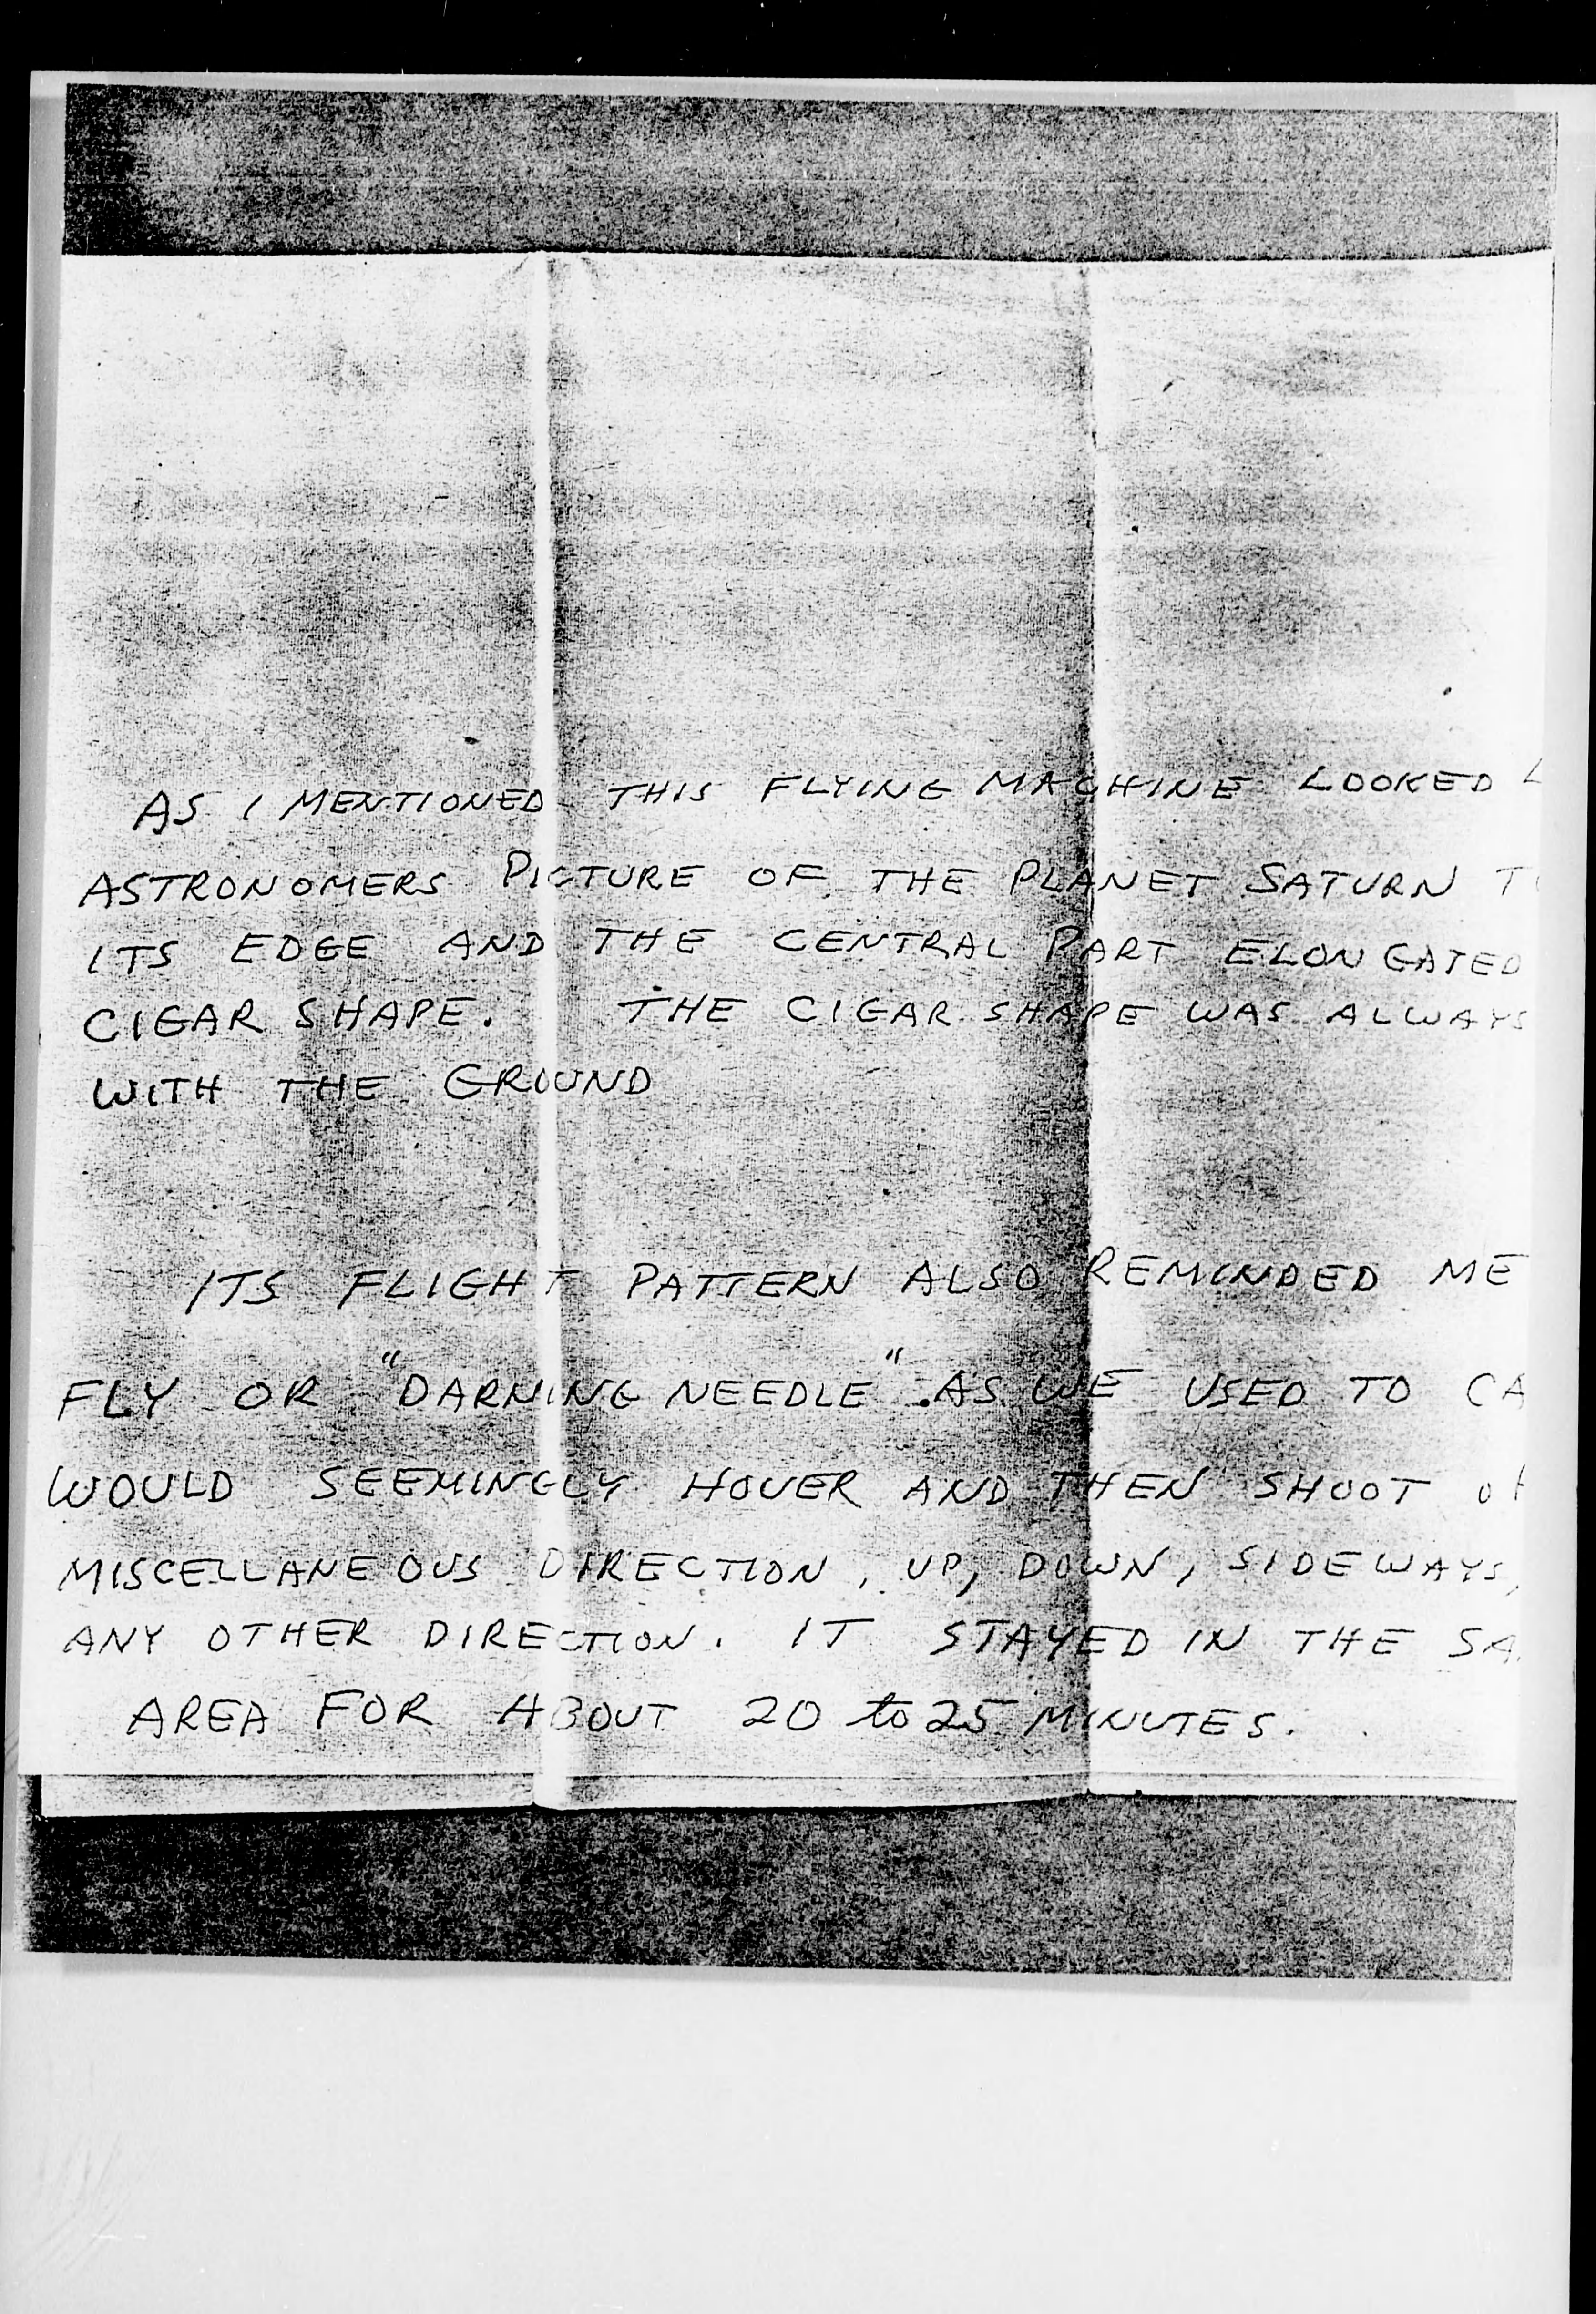 AS I MENTIONED THIS FLYING MACHINE LOOKED
ASTRONOMERS PICTURE OF THE PLANET SATURN
ITS EDGE AND THE CENTRAL PART ELONGATED
CIGAR SHAPE. THE CIGAR SHAPE WAS ALWAYS
WITH THE GROUND
ITS FLIGHT PATTERN ALSO REMINDED ME
FLY OR "DARNING NEEDLE". AS WE USED TO CA
WOULD SEEMINGLY HOVER AND THEN SHOOT
MISCELLANEOUS DIRECTION, UP, DOWN, SIDEWAYS,
ANY OTHER DIRECTION. IT STAYED IN THE SA
AREA FOR ABOUT 20 to 25 MINUTES.